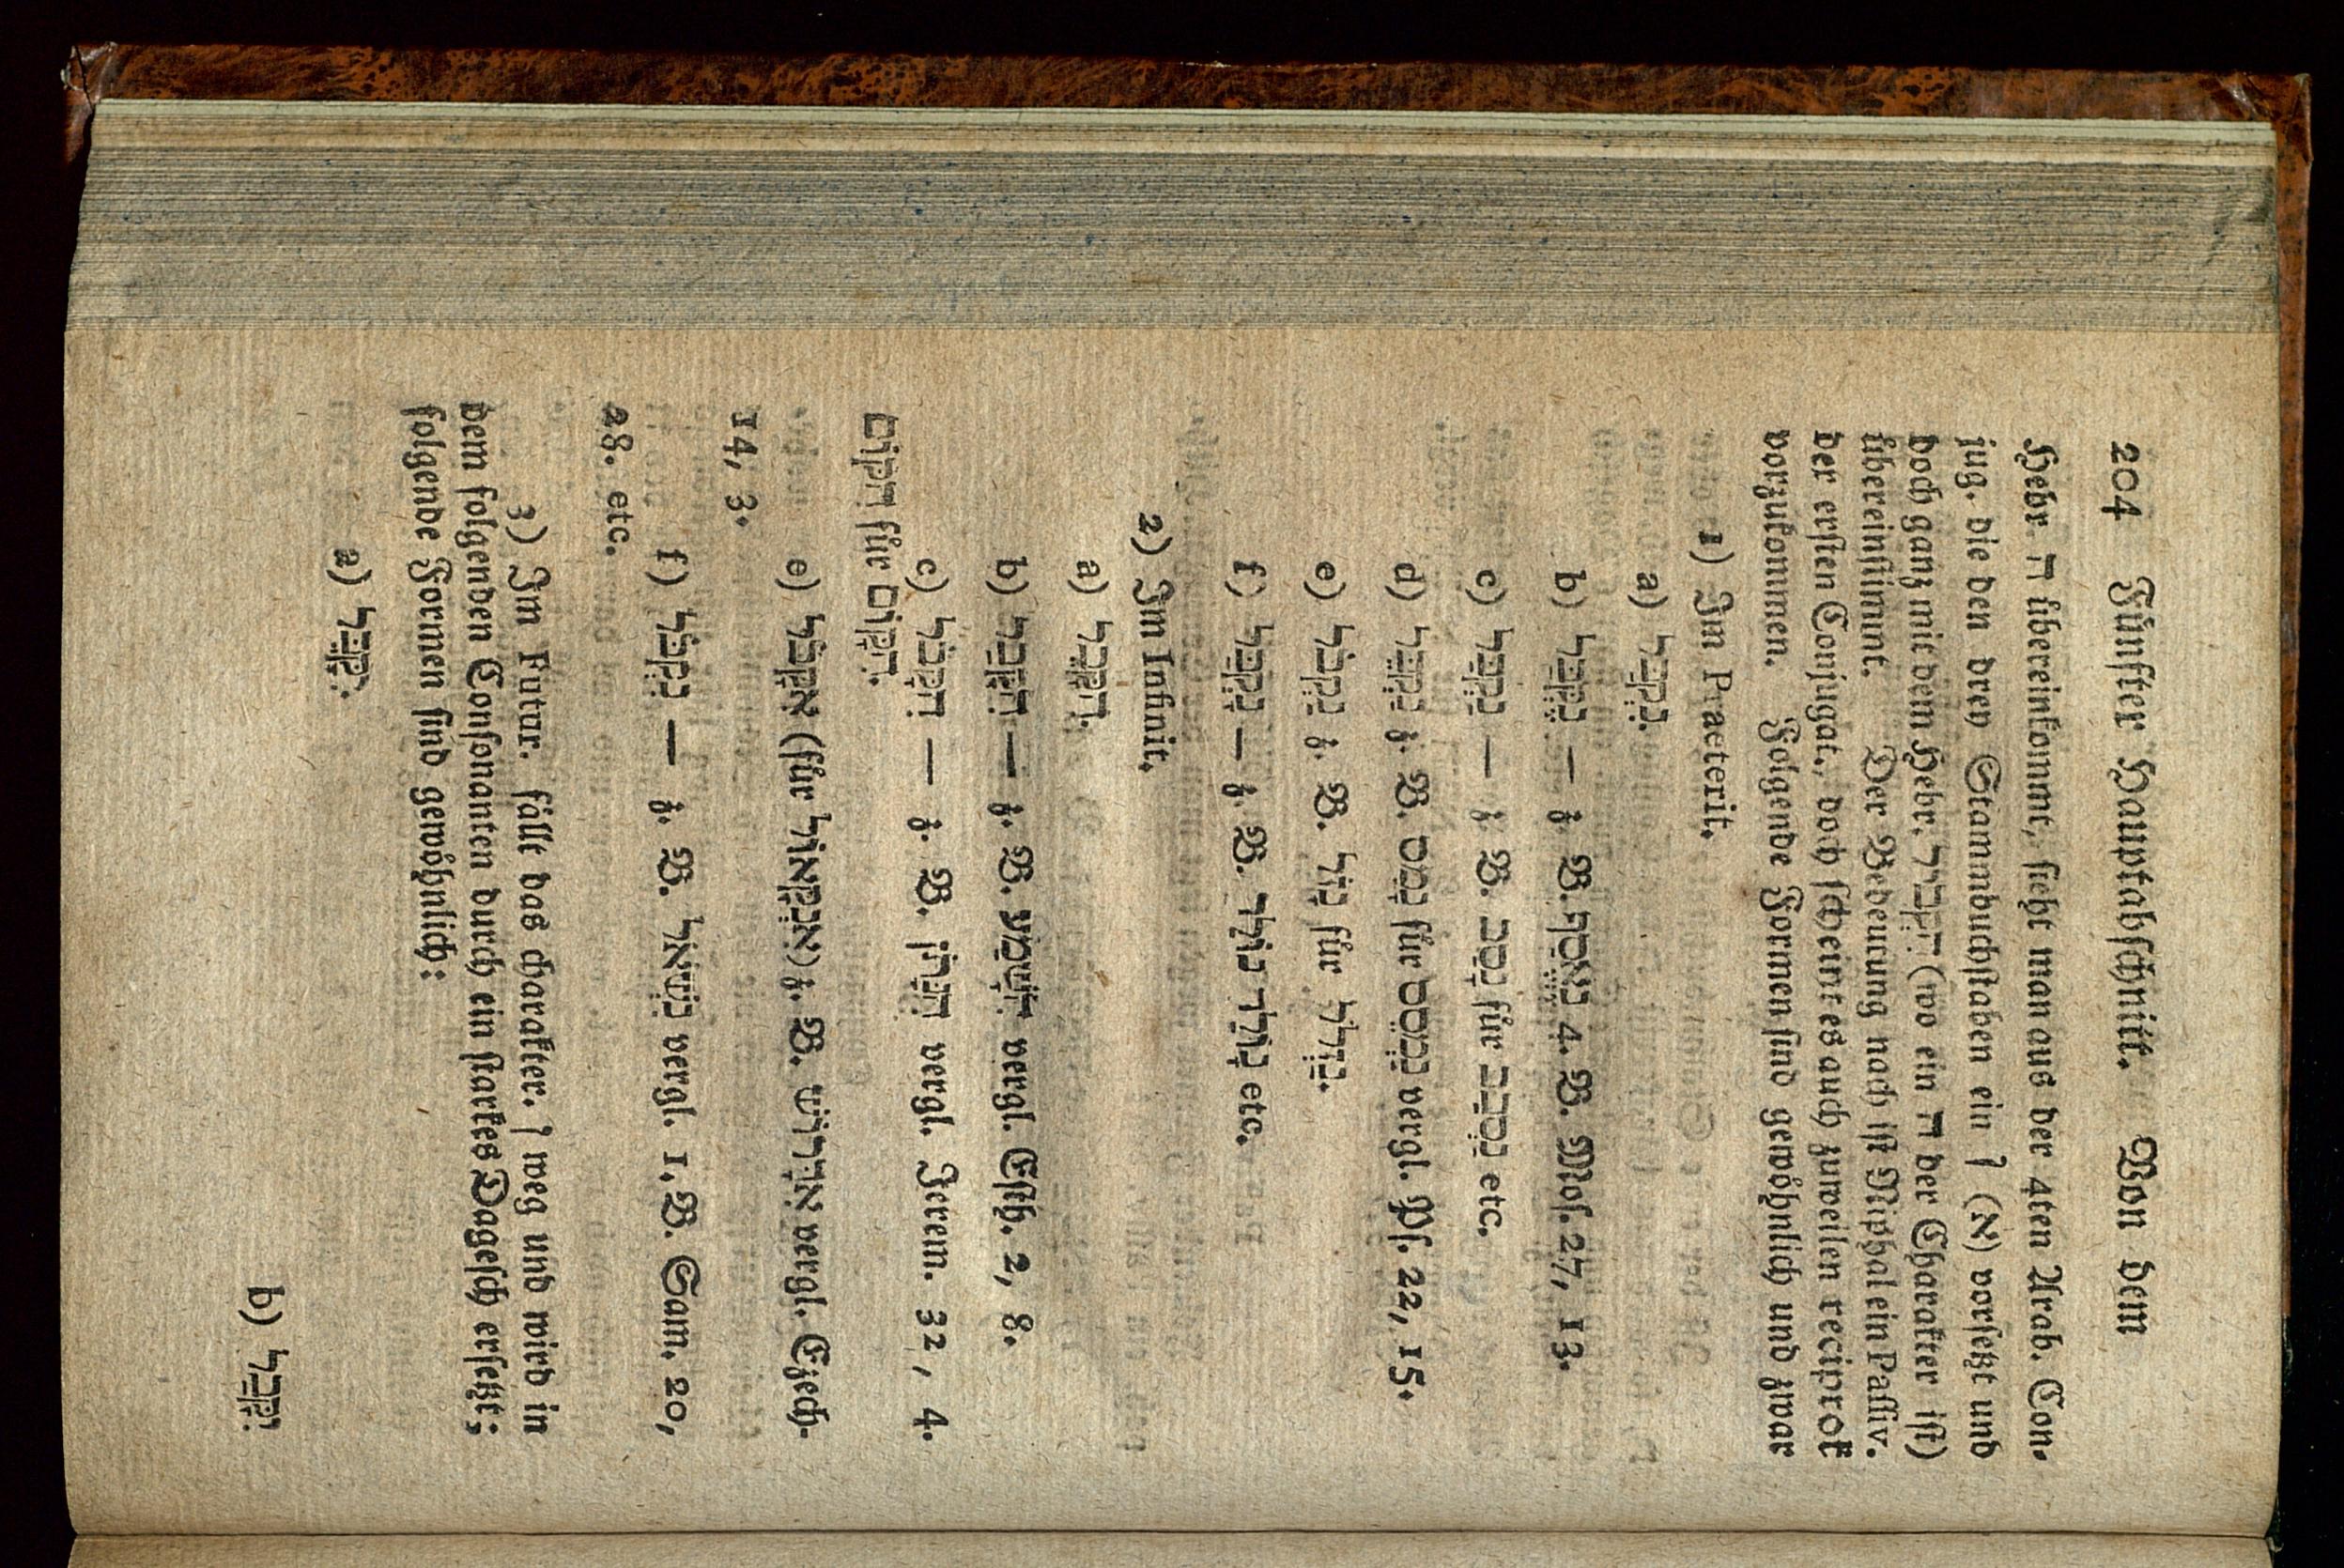 204 Fünfter Hauptabschnitt. Von dem
Hebr. ה übereinkomme, sieht man aus der 4ten Arab. Con-
jug. die den drey Stammbuchstaben ein נ (א) vorsetzt und
doch ganz mit dem Hebr. הִקְבִּיל (wo ein ה der Charakter ist)
übereinstimmt. Der Bedeutung nach ist Niphal ein Passiv.
der ersten Conjugat., doch scheint es auch zuweilen reciprok
vorzukommen. Folgende Formen sind gewöhnlich und zwar
1) Im Praeterit.
a) נִקְבַּל.
b) — z. B. 4. B. Mos. 27, 13.
c) — z. B. נָסַב für נִסְבַב etc.
d) z. B. נָמֵס für vergl. Ps. 22, 15.
e) z. B. נָזֹל für נִזְלֹל.
f) — z. B. נוֹלַד etc.
2) Im Infinit.
a) הִקָּבֵל.
b) — z. B. הִשָּׁמַע vergl. Esth. 2, 8.
c) — z. B. הִנָּתֹן vergl. Jerem. 32, 4.
הִקּוֹם für
e) (für) z. B. אִדָּרֹשׁ vergl. Ezech.
14, 3.
f) נִקְבֹּל — z. B. נִשְׁאֹל vergl. 1. B. Sam. 20,
28. etc.
3) Im Futur. fällt das charakter. נ weg und wird in
dem folgenden Consonanten durch ein starkes Dagesch ersetzt;
folgende Formen sind gewöhnlich:
a) יִקָּבֵל.
b) יִקָּבַל